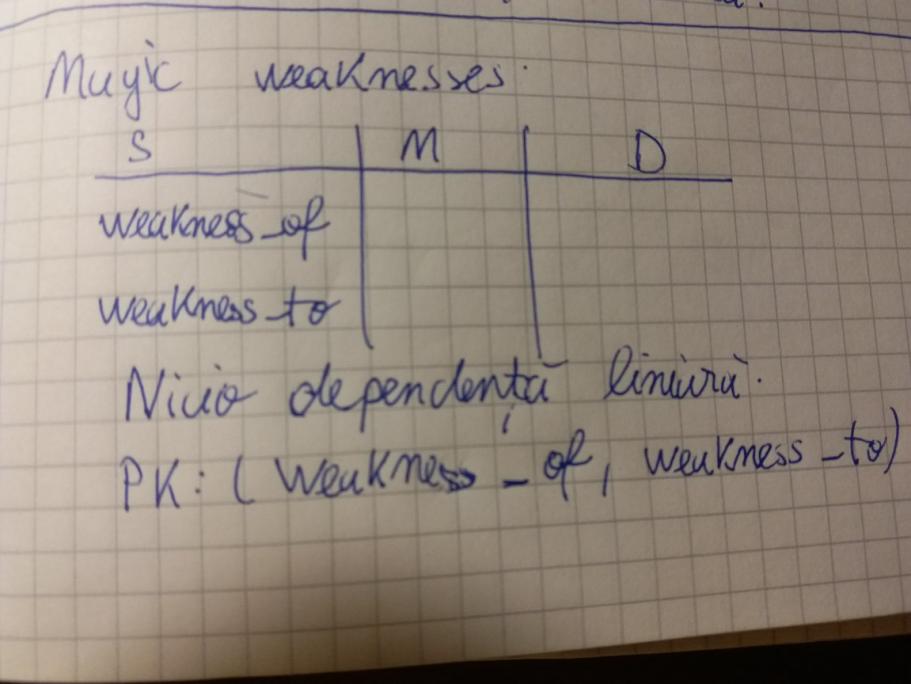 Mugic weaknesses.
S M D
weakness_of
weakness_to
Nicio dependență liniară.
PK: ( weakness_of, weakness_to)